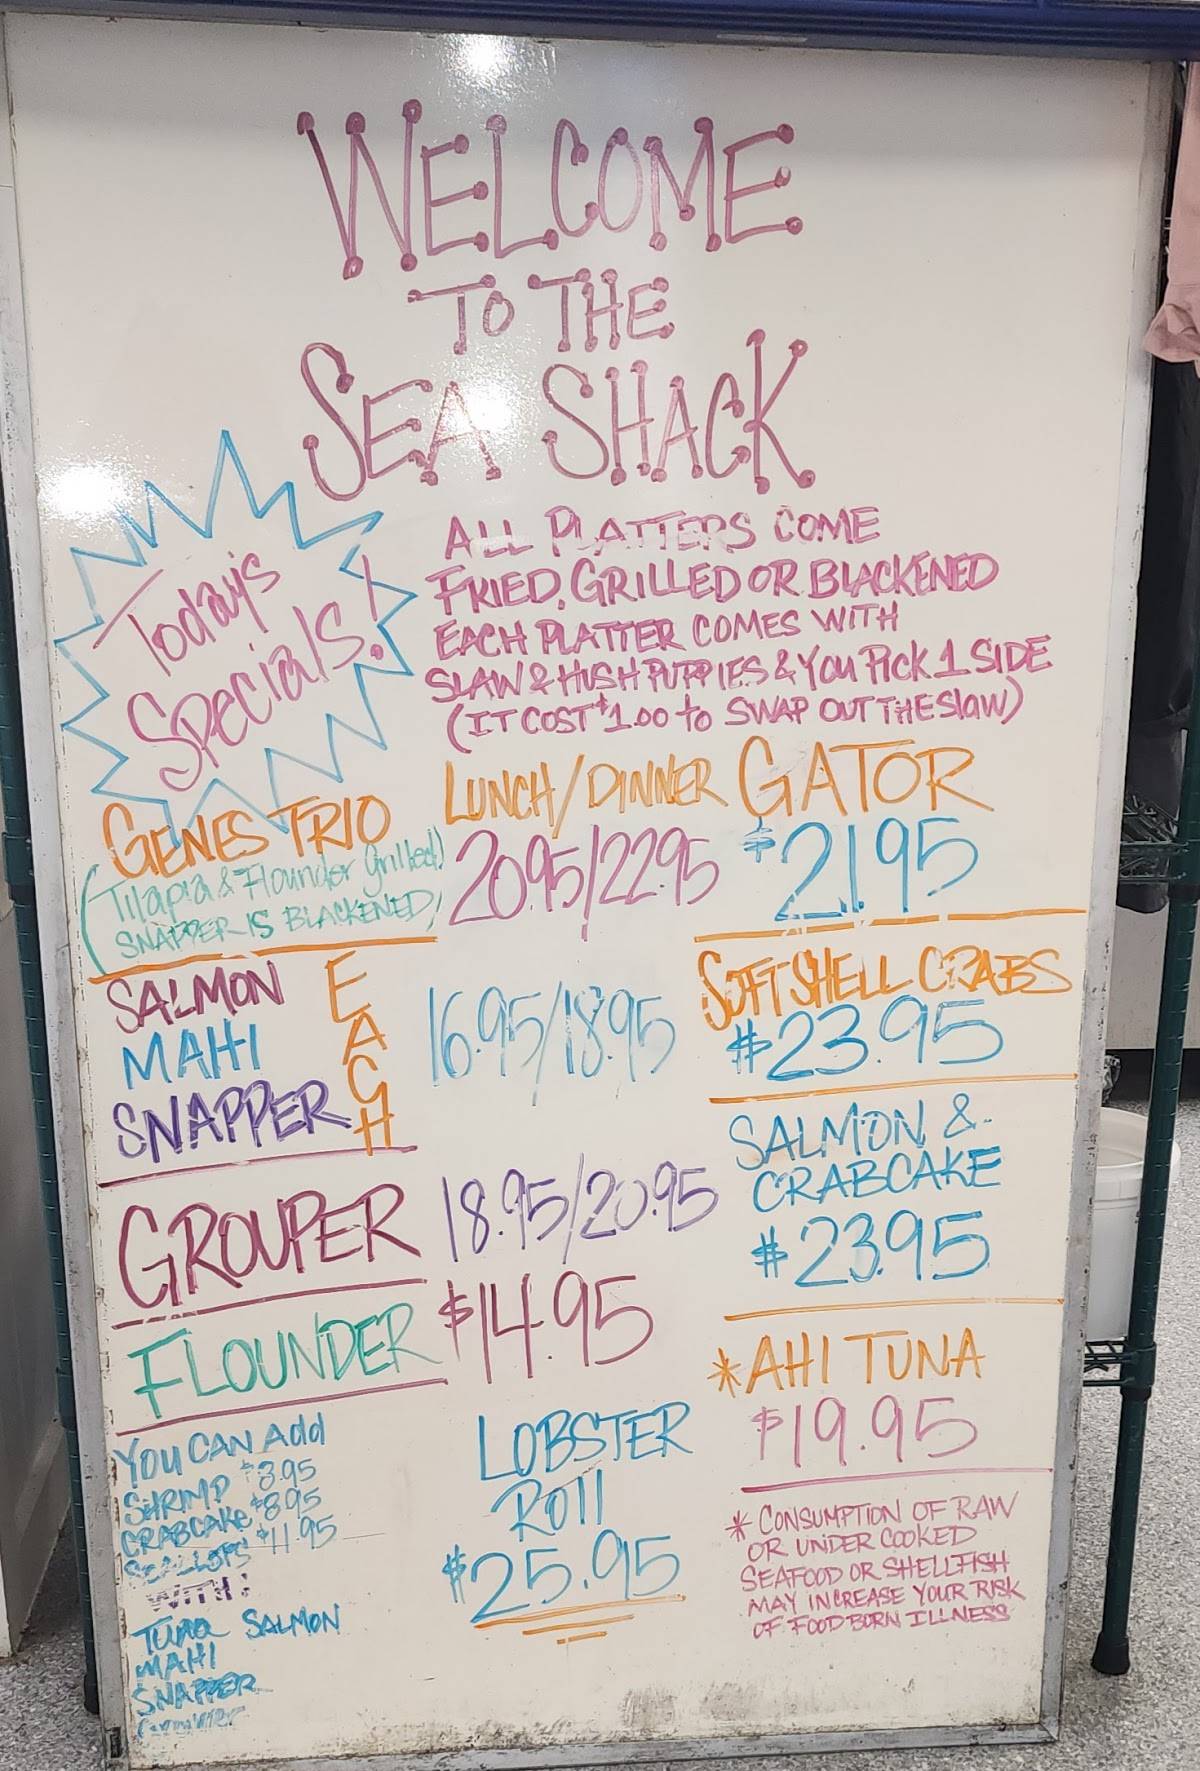 WELCOME
TO THE
SEA SHACK
Today's
Specials!
ALL PLATTERS COME
FRIED, GRILLED OR BLACKENED
EACH PLATTER COMES WITH
SLAW & HUSH PUPPIES & YOU PICK 1 SIDE
(IT COST $1.00 to SWAP OUT THE SLAW)
GENES TRIO
(Tilapia & Flounder Grilled)
SNAPPER IS BLACKENED)
LUNCH/DINNER
20.95/22.95
SALMON
MAHI
SNAPPER
EACH
16.95/18.95
GROUPER
18.95/20.95
FLOUNDER
$14.95
GATOR
$21.95
SOFT SHELL CRABS
$23.95
SALMON &
CRABCAKE
$23.95
*AHI TUNA
$19.95
YOU CAN Add
SHRIMP $3.95
CRABCAKE $8.95
SCALLOPS $11.95
WITH:
TUNA SALMON
MAHI
SNAPPER
Grouper
LOBSTER
ROll
$25.95
* CONSUMPTION OF RAW
OR UNDER COOKED
SEAFOOD OR SHELLFISH
MAY INCREASE YOUR RISK
OF FOOD BORN ILLNESS